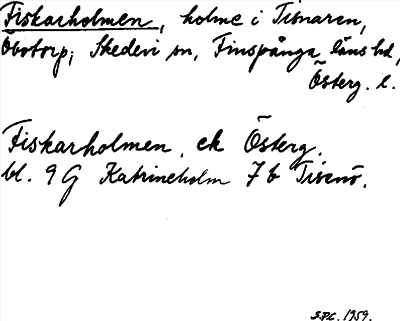 Fiskarholmen, holme i Tisnaren,
Övotorp; Skedevi sn, Finspånga läns hd,
Österg. l.
Fiskarholmen, ek Österg.
bl. 9 G Katrineholm 7 b Tisenö.
S.P.C. 1959.